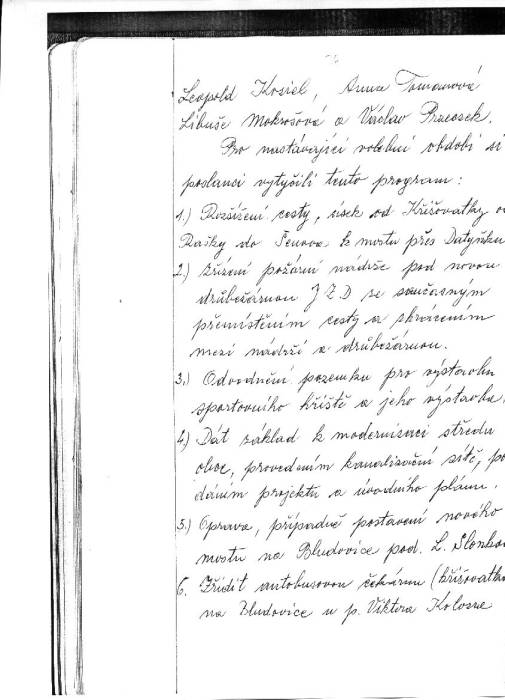 Leopold Kosiel, Anna Tomanová
Libuše Mokrošová a Václav Pracosek.
Pro nastávající volební období si
poslanci vytyčili tento program:
1.) Rozšíření cesty, úsek od Křižovatky
Rašky do Šenova k mostu přes Datyňku
2.) Zřízení požární nádrže pod novou
drůbežárnou JZD se současným
přemístěním cesty a zkrácením
mezi nádrží a drůbežárnou.
3.) Odvodnění pozemku pro výstavbu
sportovního hřiště a jeho výstavba.
4.) Dát základ k modernisaci středu
obce, provedením kanalizační sítě, po
dáním projektu a úvodního plánu.
5.) Oprava, případně postavení nového
mostu na Bludovice pod. L. Slonko
6. Zřídit autobusovou čekárnu (křižovatka
na Bludovice u p. Viktora Kolosse